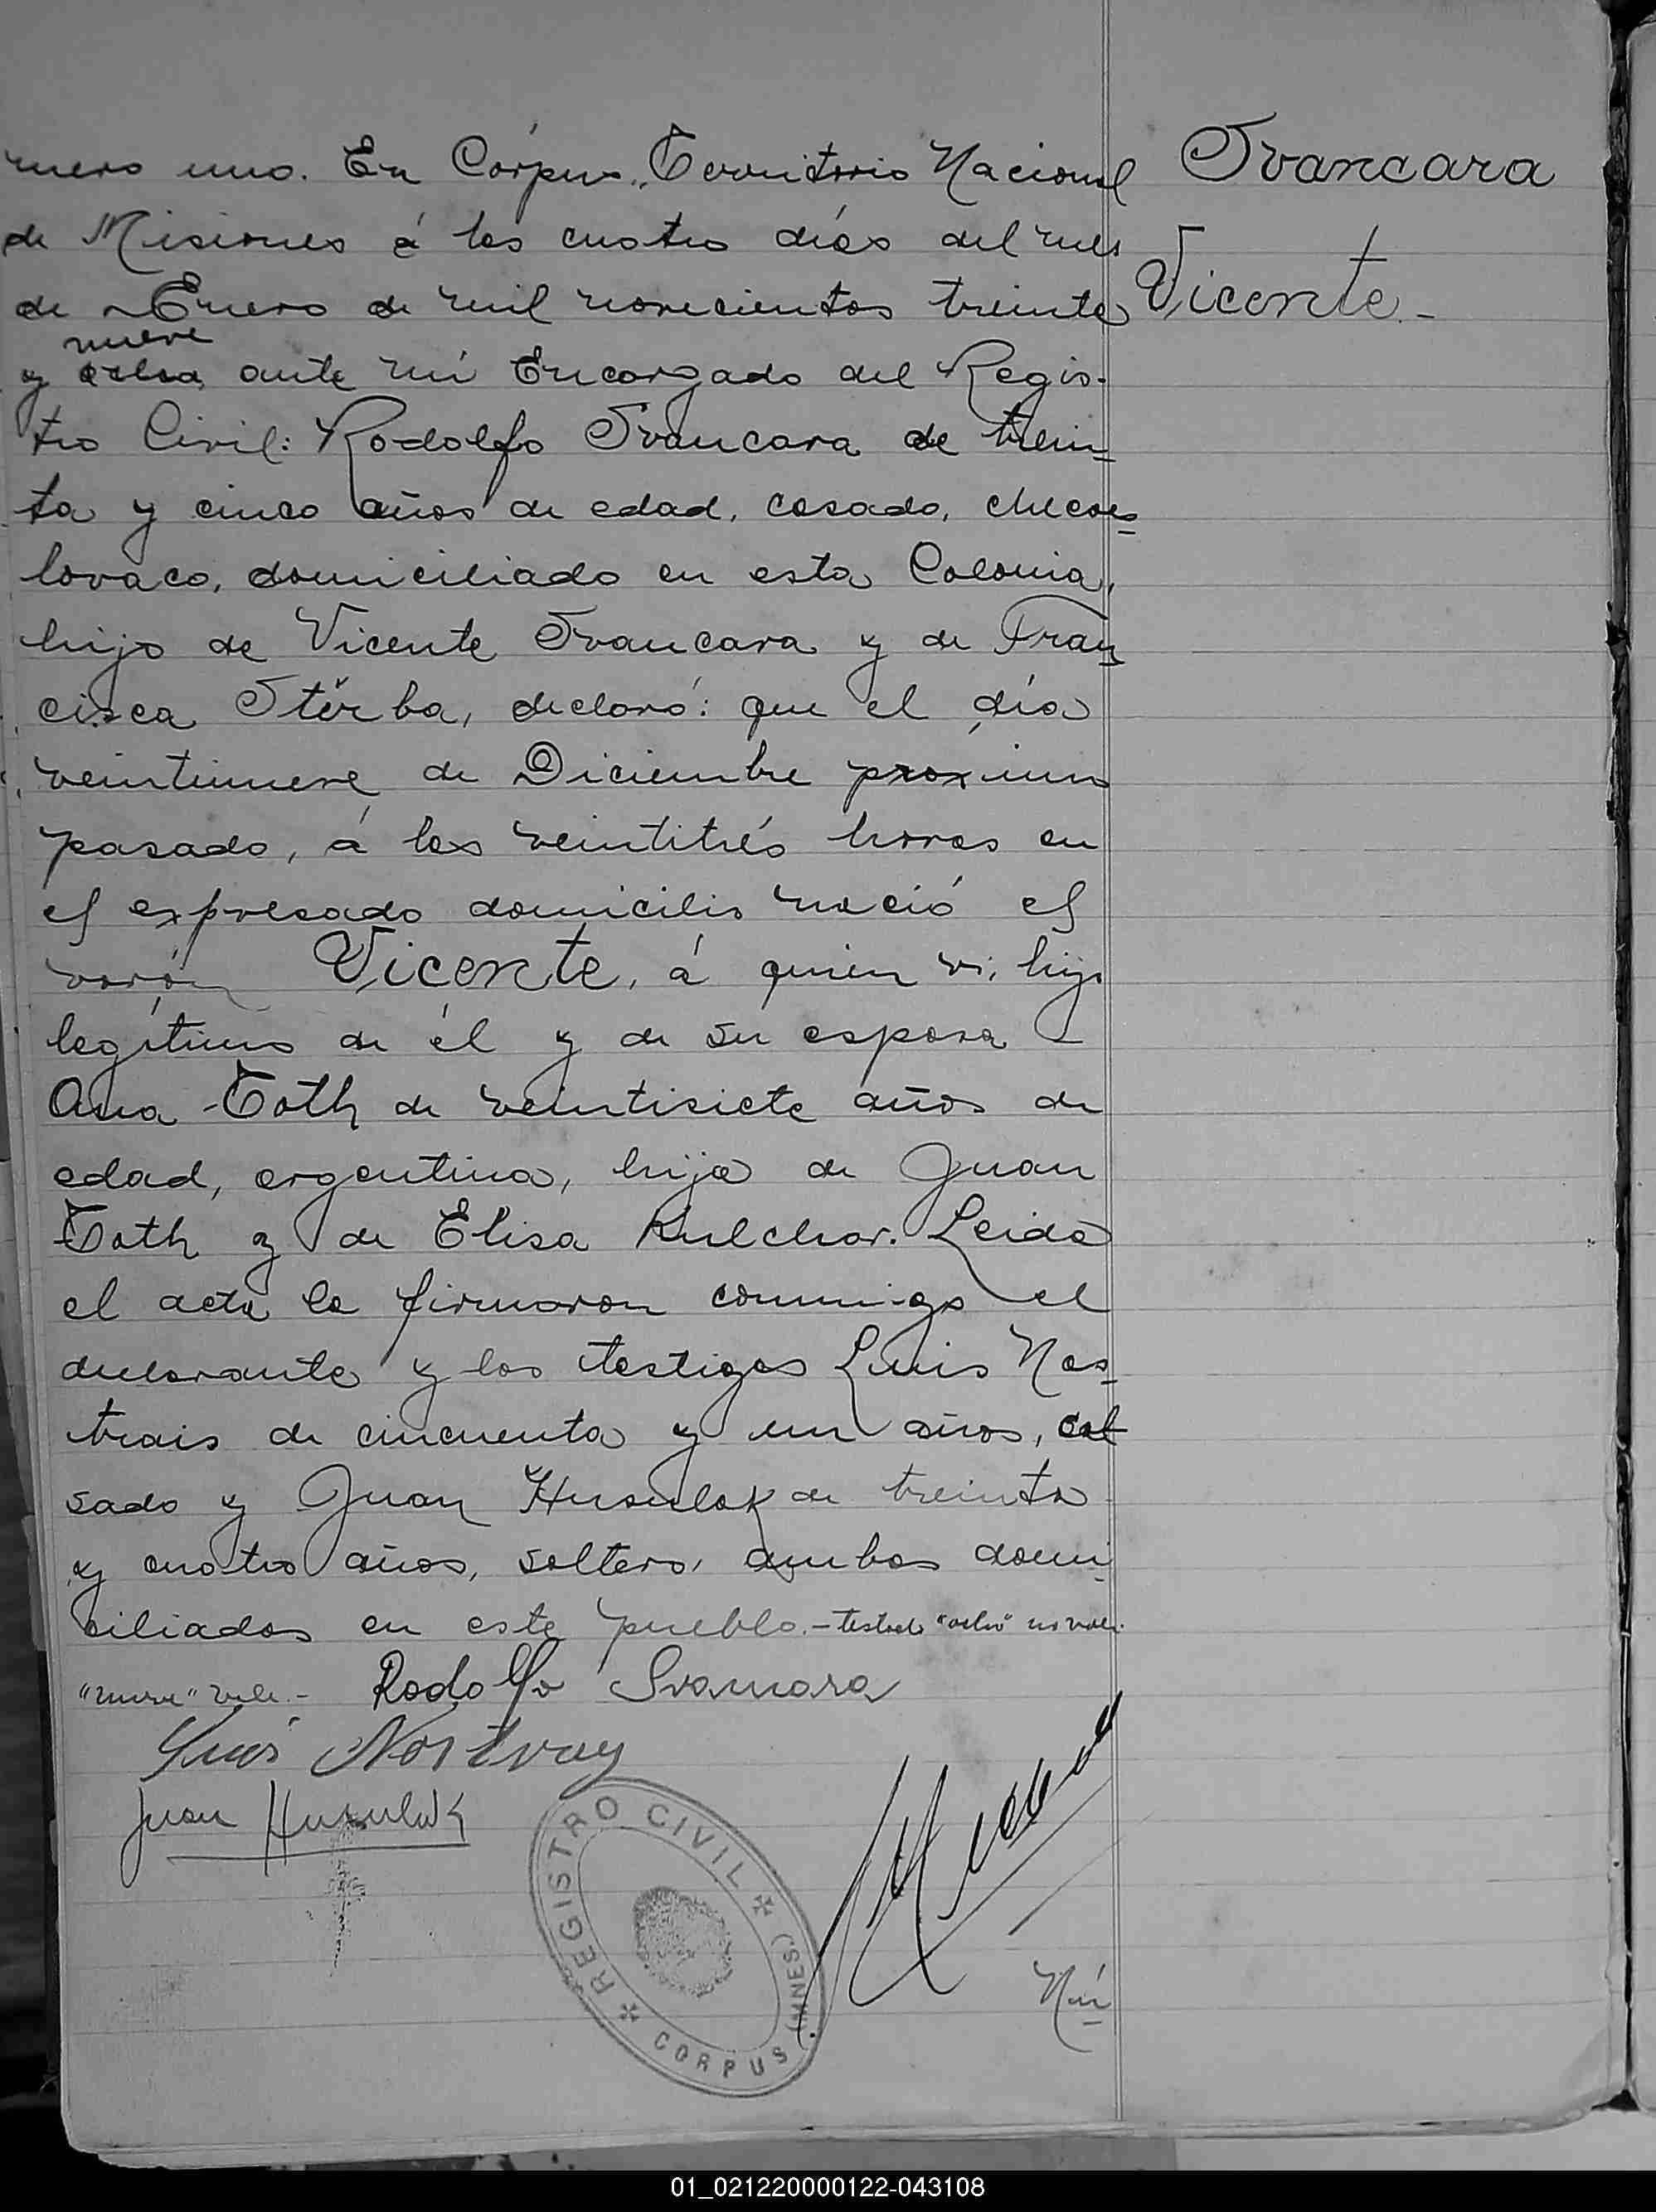 mero uno. En Córpus, Territorio Nacional
Svancara
de Misiones á los cuatro días del mes
Vicente.-
de Enero de mil novecientos treinta
nueve
y ocho, ante mí Encargado del Regis-
tro Civil: Rodolfo Svancara de trein-
ta y cinco años de edad, casado, checoes-
lovaco, domiciliado en esta Colonia,
hijo de Vicente Svancara y de Fran-
cisca Stěrba, declaró: que el día
veintinueve de Diciembre proximo
pasado, á las veintitrés horas en
el expresado domicilio nació el
varón Vicente, á quien vi, hijo
legítimo de él y de su esposa
Ana Toth de veintisiete años de
edad, argentina, hija de Juan
Toth y de Elisa Kulchar. Leida
el acta la firmaron conmigo el
declarante y los testigos Luis Nos-
trais de cincuenta y un años, ca-
sado y Juan Husulak de treinta
y cuatro años, soltero, ambos domi-
ciliados en este pueblo.- testado "ocho" no vale.
"nueve" vale.- Rodolfo Svancara
Luis Nostray
Juan Husulak
REGISTRO CIVIL
CORPUS (MNES.)
Nú-
01_021220000122-043108